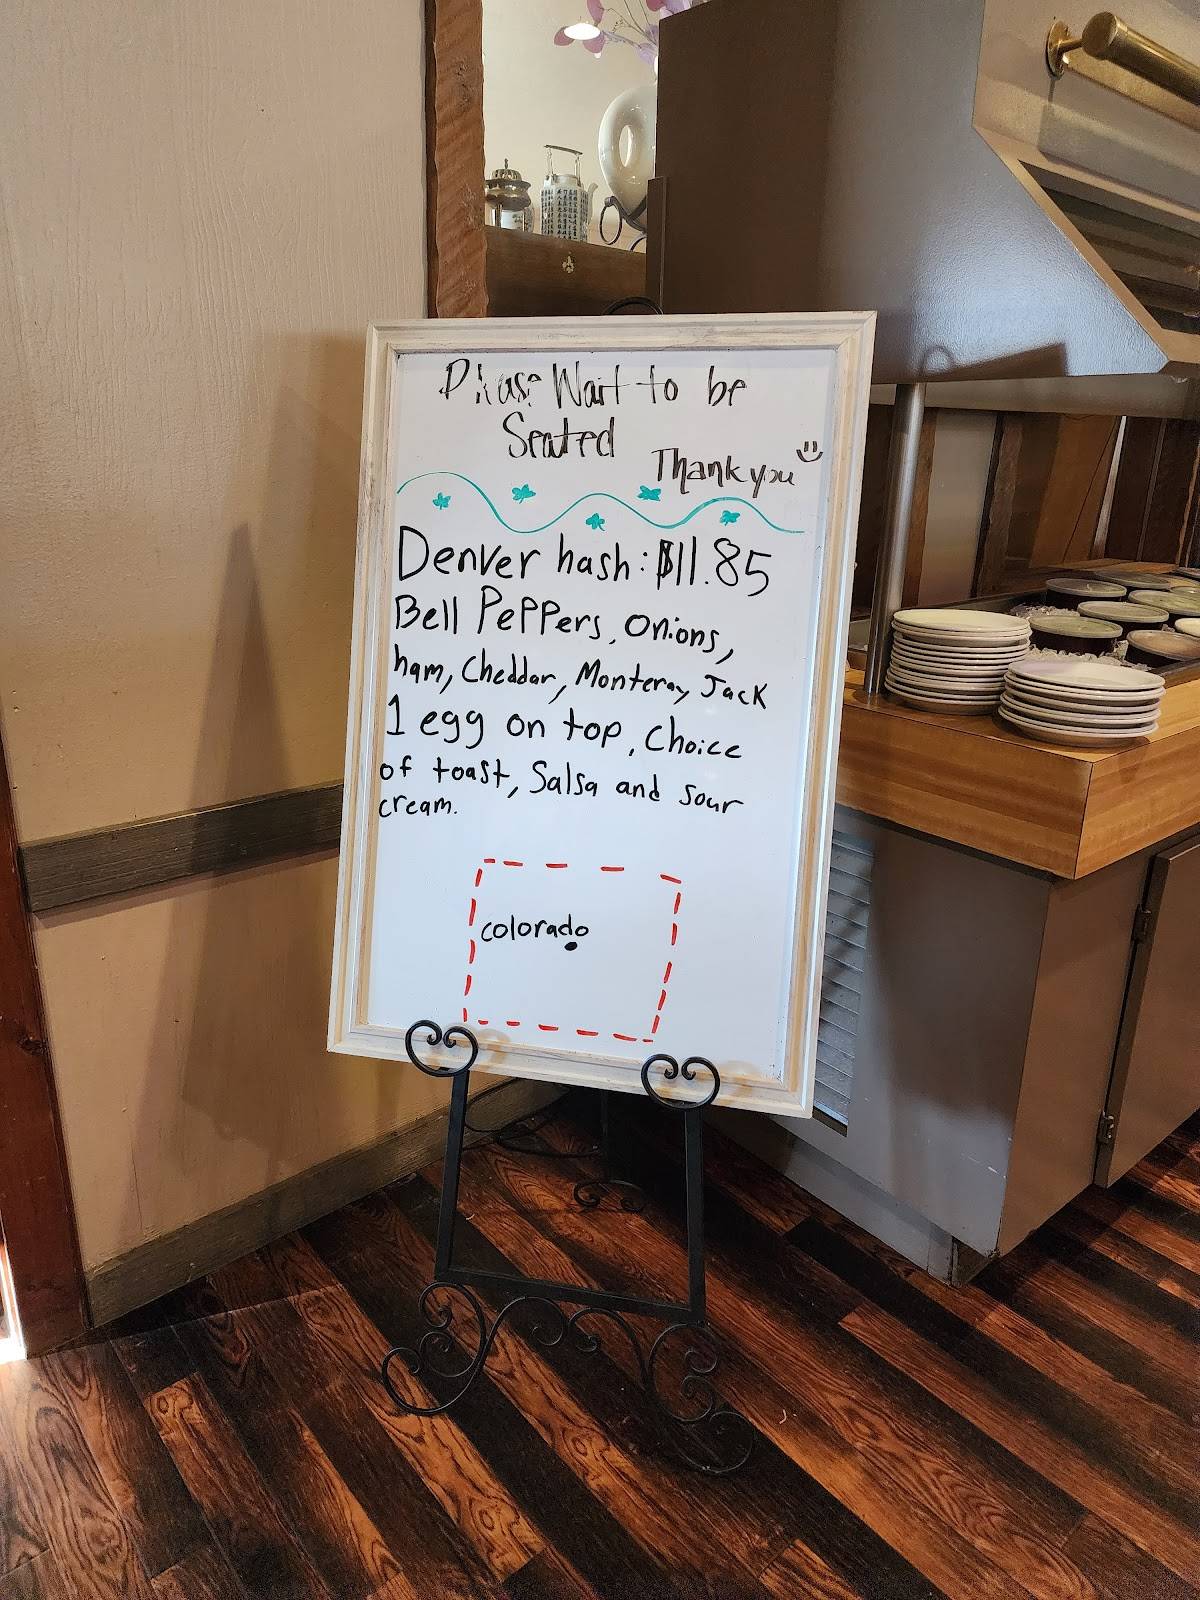 Please Wait to be
Seated
Thank you
Denver hash: $11.85
Bell Peppers, onions,
ham, Cheddar, Monteray Jack
1 egg on top, Choice
of toast, Salsa and sour
cream.
colorado